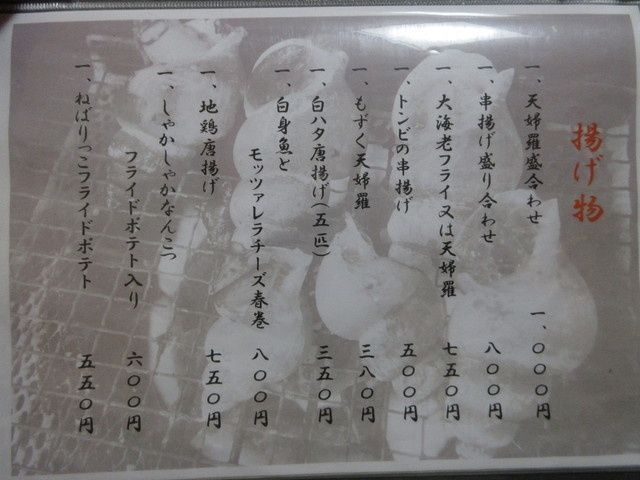 揚げ物
一、天婦羅盛合わせ 一、〇〇〇円
一、串揚げ盛り合わせ 八〇〇円
一、大海老フライ又は天婦羅 七五〇円
一、トンビの串揚げ 五〇〇円
一、もずく天婦羅 三八〇円
一、白ハタ唐揚げ(五匹) 三五〇円
一、白身魚と
モッツァレラチーズ春巻 八〇〇円
一、地鶏唐揚げ 七五〇円
一、しゃかしゃかなんこつ
フライドポテト入り 六〇〇円
一、ねばりっこフライドポテト 五五〇円